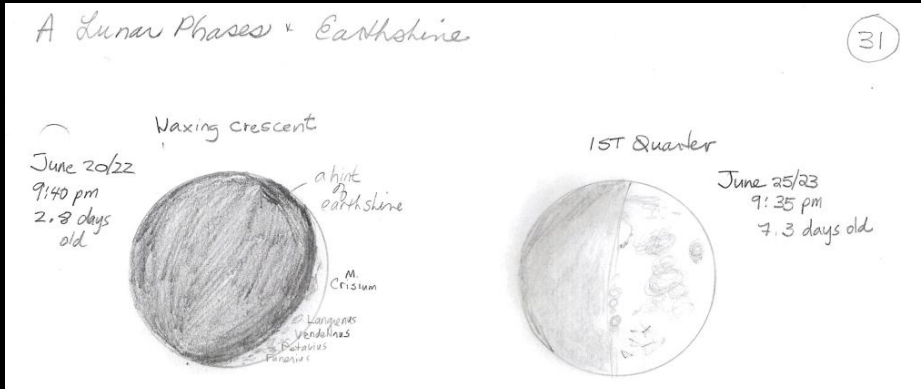 A Lunar Phases & Earthshine
31
Waxing crescent
June 20/22
9:40 pm
2.8 days
old
a hint
of
earthshine
M.
Crisium
Langrenus
Vendelinus
Petavius
Furnerius
1ST Quarter
June 25/23
9:35 pm
7.3 days old